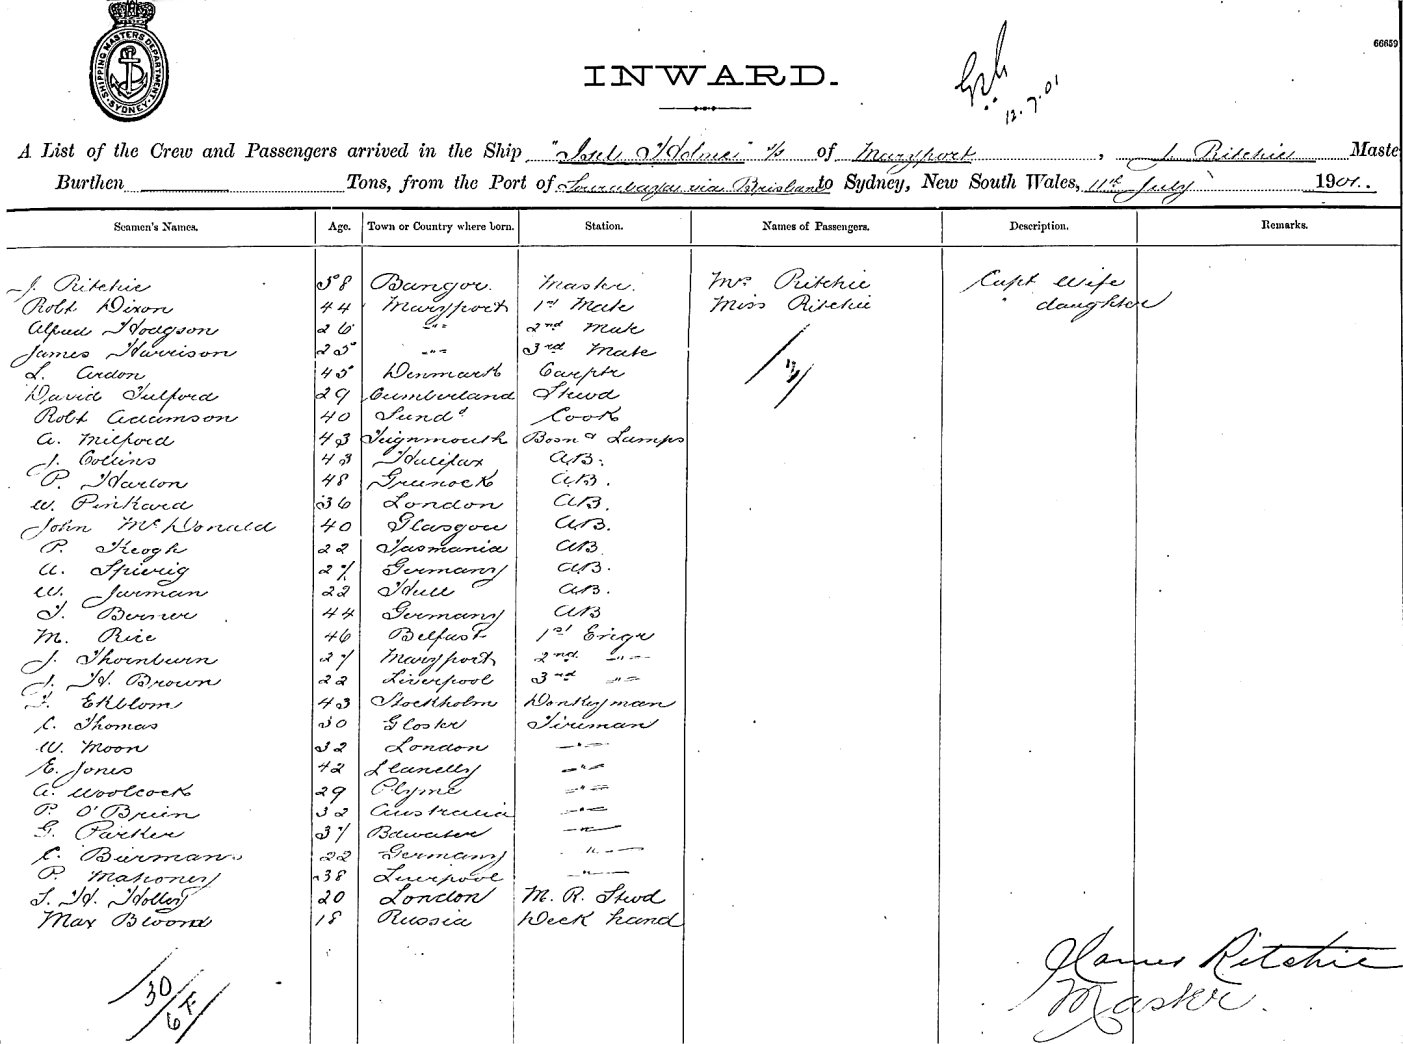 SHIPPING MASTERS DEPARTMENT SYDNEY
66659
INWARD.
12.7.01
A List of the Crew and Passengers arrived in the Ship "Isel Holme" s/s of Maryport, J. Ritchie Maste
Burthen Tons, from the Port of Sourabaya via Brisbane to Sydney, New South Wales, 11th July 1901.
Seamen's Names. Age. Town or Country where born. Station. Names of Passengers. Description. Remarks.
J. Ritchie 58 Bangor. Master. Mrs Ritchie Capt Wife
Robt Dixon 44 Maryport 1st Mate Miss Ritchie " daughter
Alfred Hodgson 26 " " 2nd Mate
James Harrison 25 " " 3rd Mate
L. Ardon 45 Denmark Carptr
David Tulford 29 Cumberland Stewd
Robt Adamson 40 Sundd Cook
A. Milford 43 Teignmouth Bosn & Lamps
J. Collins 43 Halifax A.B.
P. Harlon 48 Greenock A.B.
W. Pinkard 36 London A.B.
John McDonald 40 Glasgow A.B.
P. Keogh 22 Tasmania AB
A. Spierig 27 Germany A.B.
W. Jarman 22 Hull A.B.
T. Berner 44 Germany AB
M. Rice 46 Belfast 1st Engr
J. Thornburn 27 Maryport 2nd "
J. H. Brown 22 Liverpool 3rd "
F. Ekblom 43 Stockholm Donkeyman
C. Thomas 30 Gloster Fireman
W. Moon 32 London "
E. Jones 42 Llanelly "
A. Woolcock 29 Plyme "
P. O'Brien 32 Australia "
G. Parker 37 Bdwater "
C. Burmans 22 Germany "
P. Mahoney 38 Liverpool "
S. H. Holley 20 London M. R. Stewd
Max Bloom 18 Russia Deck hand
James Ritchie
Master.
30
6 F